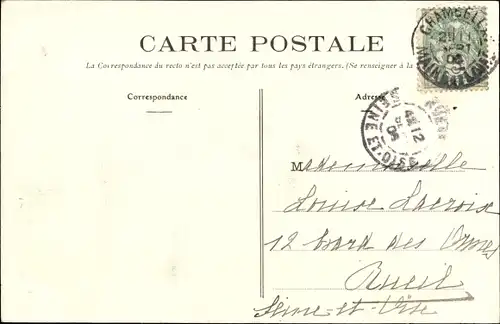 CARTE POSTALE
La Correspondance du recto n'est pas acceptée par tous les pays étrangers. (Se renseigner à la
Correspondance
Adresse
SEINE ET-OISE
Mademoiselle
Louise Lacroix
12 bard des Ormes
Rueil
Seine-et-Oise